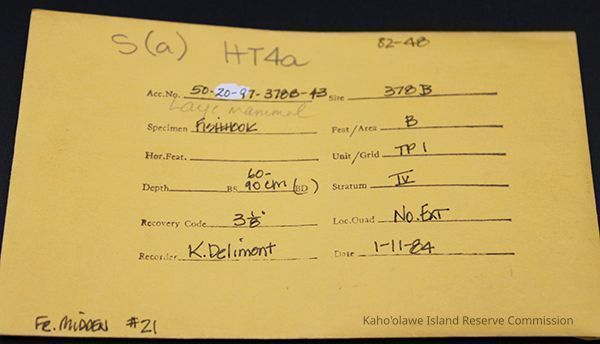 S(a) HT4a 82-48
Acc.No. 50-20-97-378B-43 Site 378B
Large mammal
Specimen Fishhook Feat/Area B
Hor.Feat. Unit/Grid TP1
60-
Depth BS 90 cm (BD) Stratum IV
Recovery Code 3 1/8" Loc.Quad No.Ext
Recorder K.Delimont Date 1-11-84
Fe. MIDDEN #21
Kaho'olawe Island Reserve Commission